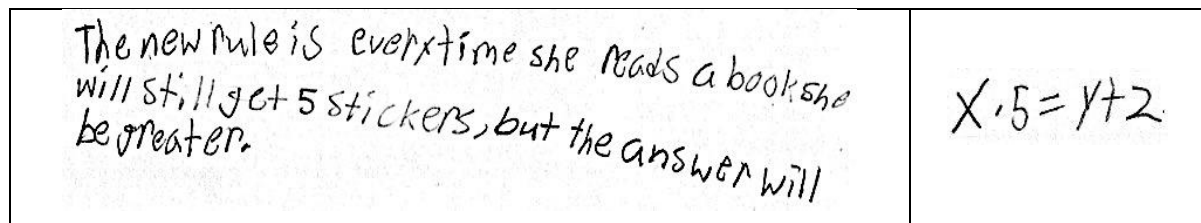 The new rule is everytime she reads a book she
will still get 5 stickers, but the answer will
be greater.
X·5=y+2